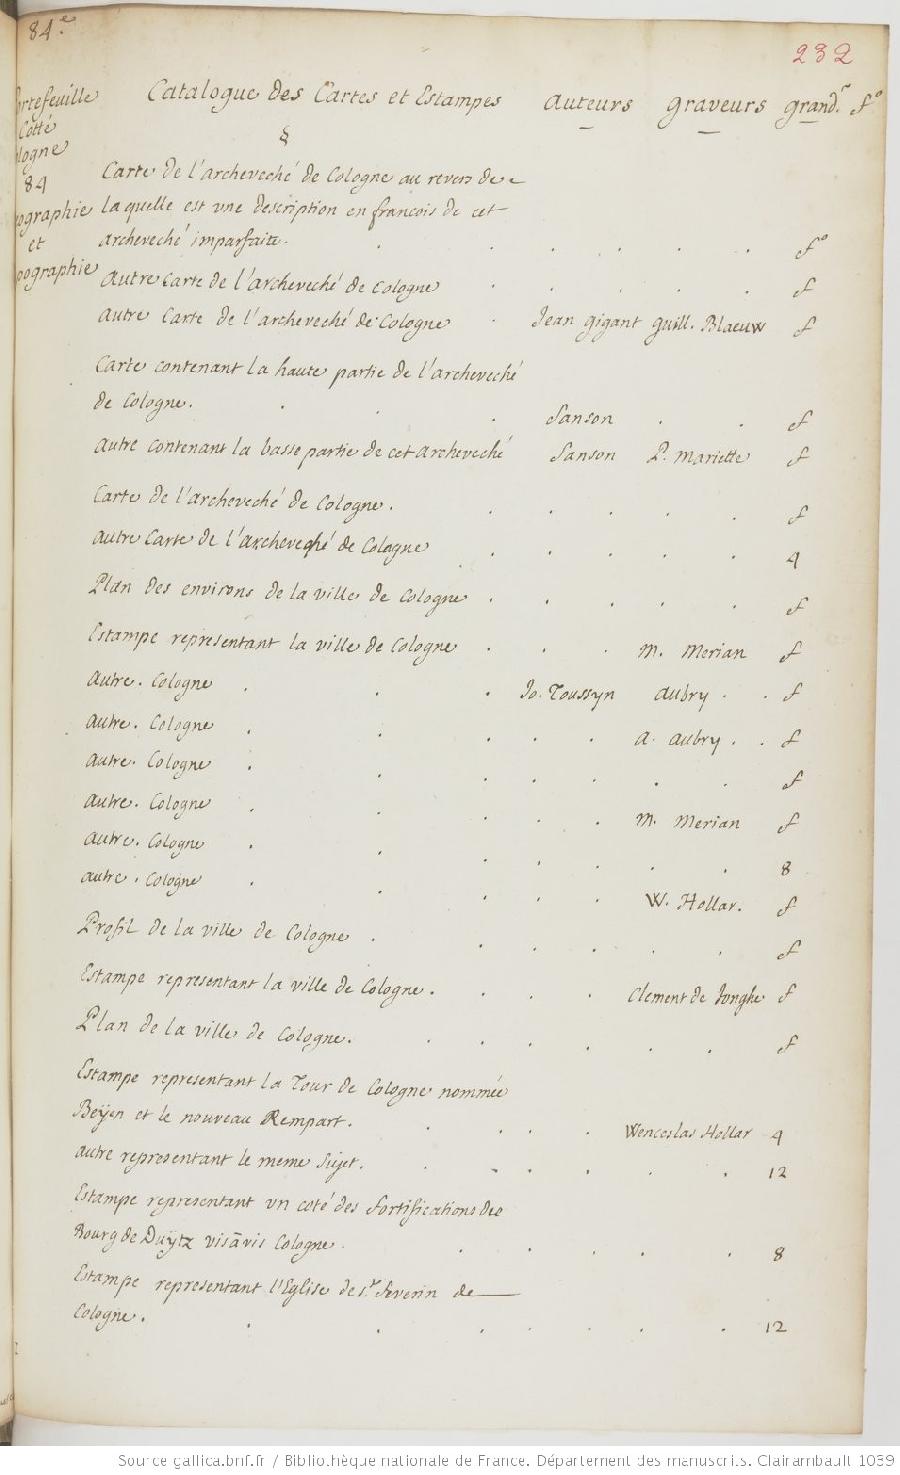 84.e
232
Portefeuille Catalogue des Cartes et Estampes auteurs graveurs grand.r f.o
Cotté
Cologne §
84 Carte de l'archeveché de Cologne au revers de
ographie laquelle est vne description en francois de cet
et archeveché imparfaite. f.o
pographie autre carte de l'archeveché de Cologne f
autre Carte de l'archeveché de Cologne Jean gigant guill. Blaeuw f
Carte contenant la haute partie de l'archeveché
de Cologne. Sanson f
autre contenant la basse partie de cet archeveché Sanson P. mariette f
Carte de l'archeveché de Cologne. f
autre Carte de l'archeveché de Cologne 4
Plan des environs de la ville de Cologne f
Estampe representant la ville de Cologne m. merian f
autre. Cologne Jo. Toussyn aubry f
autre. Cologne a. aubry f
autre. Cologne f
autre. Cologne m. merian f
autre. Cologne 8
autre. Cologne W. Hollar. f
Profil de la ville de Cologne f
Estampe representant la ville de Cologne. Clement de Jonghe f
Plan de la ville de Cologne. f
Estampe representant la Tour de Cologne nommée
Beÿen et le nouveau Rempart. Wenceslas Hollar 4
autre representant le meme sujet. 12
Estampe representant vn coté des fortifications de
Bourg de Duÿtz vis a vis Cologne 8
Estampe representant l'Eglise de s.t Severin de
Cologne. 12
Source gallica.bnf.fr / Bibliothèque nationale de France. Département des manuscrits. Clairambault 1039